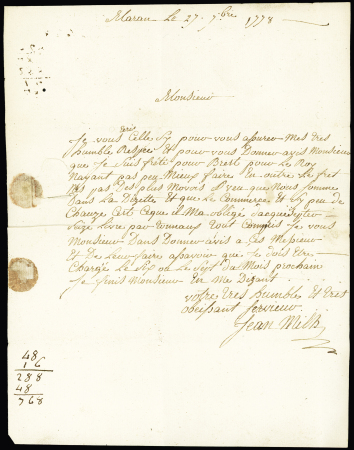 Maran Le 27 7bre 1778
Monsieur
Ecris
Je vous Celle Sy pour vous assurer Mes tres
humble Respec Et pour vous Donner avis Monsieur
que Je Suis frété pour Brest pour Le Roy
Nayant pas peu Mieux faire En outre Le fret
Nes pas Des plus Movois
Dans La Et que Le Commerce Et Sy peu de
Chauze Cest Ceque il Ma obligé
Seize Livre par tonnaux tout Compris Je vous
Monsieur Dans Donner avis a Ces Messieur
Et De Leur faire asavoir que Je dois Etre
Chargé Le Six ou Le Sept du Mois prochain
Je finis Monsieur En Me Dizant
votre tres humble Et tres
obeissant Servieur
Jean
48
16
288
48
768